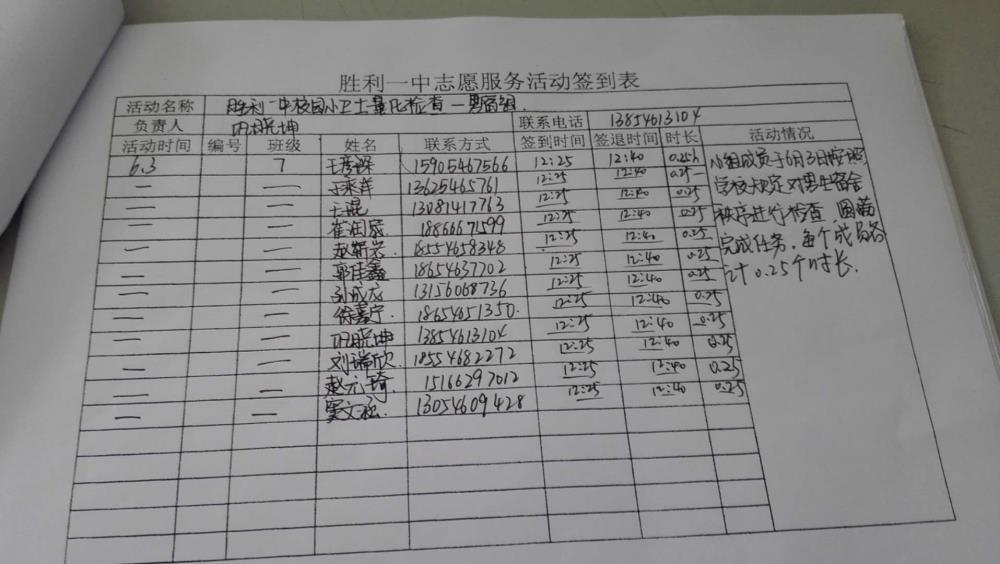 胜利一中志愿服务活动签到表
活动名称 胜利一中校园小卫士量化检查—男宿组.
负责人 晓坤 联系电话 13854613104
活动时间 编号 班级 姓名 联系方式 签到时间 签退时间 时长 活动情况
6.3 7 王彦深 15905467566 12:25 12:40 0.25h 小组成员于6月3日按照
一 一 于乘洋 13625465761 12:25 12:40 0.25 学校规定对男生宿舍
一 一 王琨 13081417763 12:25 12:40 0.25 秩序进行检查,圆满
一 一 崔润泉 18866671599 12:25 12:40 0.25 完成任务,每个成员各
一 一 赵靳岩 18554658348 12:25 12:40 0.25 计0.25个时长.
一 一 郭佳鑫 18654637702 12:25 12:40 0.25
一 一 孙成龙 13156068736 12:25 12:40 0.25
一 一 徐嘉宁 18654651350 12:25 12:40 0.25
一 一 晓坤 13854613104 12:25 12:40 0.25
一 一 刘瑞欣 18554682272 12:25 12:40 0.25
一 一 赵元琦 15166297012 12:25 12:40 0.25
一 一 窦文泓 13054609428 12:25 12:40 0.25